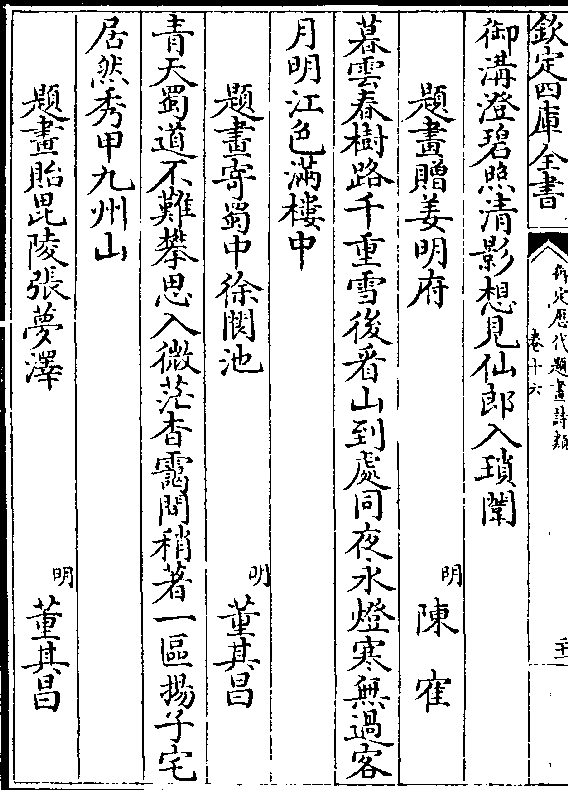 欽定四庫全書
御定歷代題畫詩類
卷十六
御溝澄碧照清影想見仙郎入瑣闈
題畫贈姜明府
明 陳寉
暮雲春樹路千重雪後看山到處同夜永燈寒無過客
月明江色滿樓中
題畫寄蜀中徐閬池
明 董其昌
青天蜀道不難攀思入微茫杳靄間稍著一區揚子宅
居然秀甲九州山
題畫貽毘陵張夢澤
明 董其昌